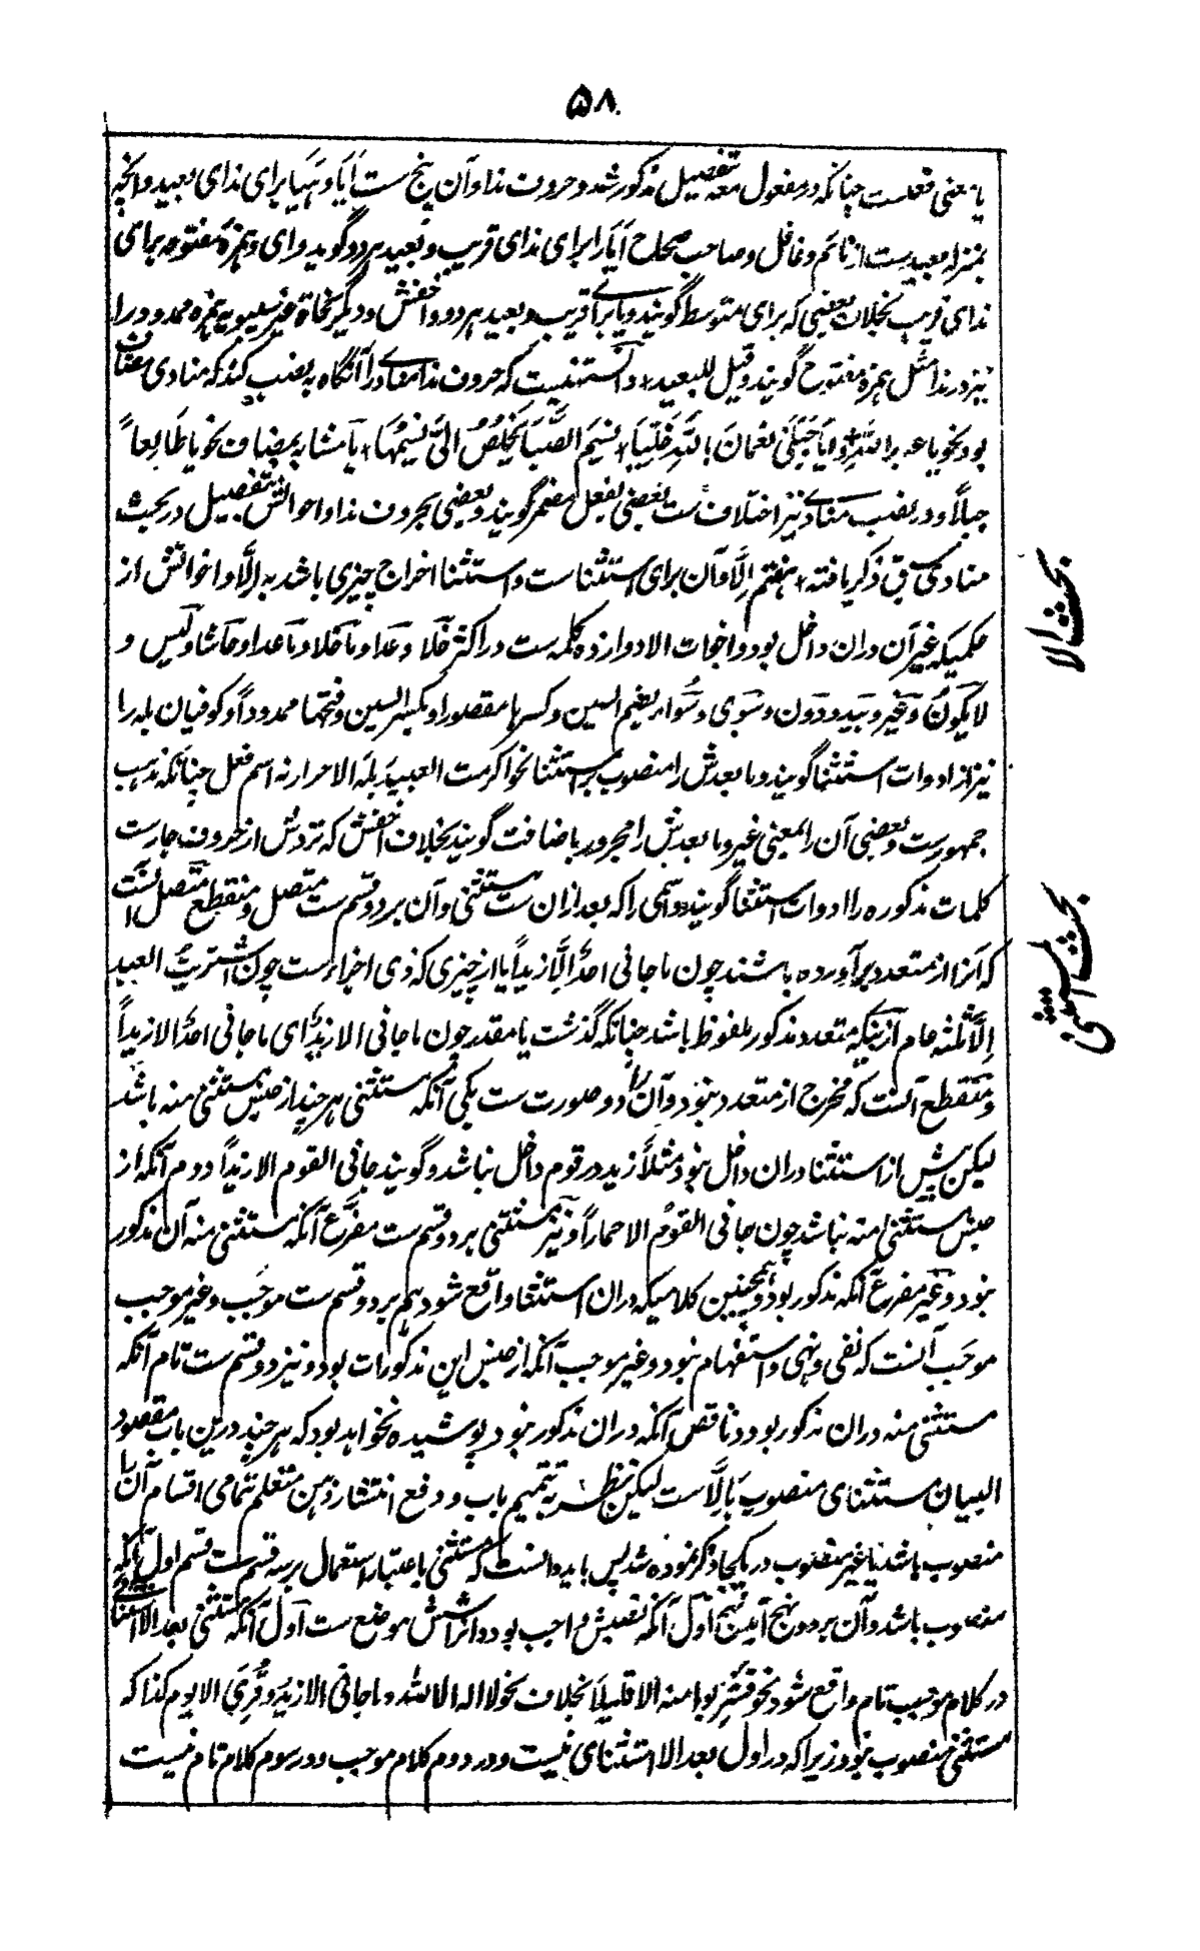 ۵۸
یا معنی فعلست چنانکه در مفعول معه بتفصیل مذکور شد و حروف ندا و آن پنج ست اَیَا و هَیَا برای ندای بعید و آنچه
بمنزله بعیدست از نائم و غافل و صاحب صحاح اَیَا را برای ندای قریب و بعید هر دو گوید و ای و همزهٔ مفتوحه برای
ندای قریب بخلاف بعضی که برای متوسط گویند و یا برای قریب و بعید هر دو و اخفش و دیگر نحاة غیر سیبویه همزه ممدوده را
نیز در ندا مثل همزه مفتوح گویند و قیل للبعید و دانستنیست که حروف ندا منادی را آنگاه بنصب کند که منادی مضاف
بود نحو یا عبد اللّٰه و اَیَا جَبَلَیْ نعمانَ باللّٰهِ خَلِّیَا نسیمَ الصَّبَا یَخْلُصُ الیَّ نسیمُهَا یا مشابه بمضاف نحو یا طَالِعاً
جبلاً و در نصب منادی نیز اختلاف ست بعضی بفعل مضمر گویند و بعضی بحروف ندا و احوالش بتفصیل در بحث
منادی سبق ذکر یافته هفتم اِلَّا و آن برای استثناست و استثنا اخراج چیزی باشد به اِلَّا و اخواتش از
حکمیکه غیر آن دران داخل بود و اخوات الا دوازده کلمه ست در اکثر خَلَا و عَدَا و مَا خلا و مَا عدا و حَاشا و لَیس و
لا یَکونُ و غَیر و بَیدَ و دُون و سِوی و سُواء بضم السین و کسرها مقصورا و بکسر السین و فتحها ممدوداً و کوفیان بله را
نیز از ادوات استثنا گویند و ما بعدش را منصوب بر استثنا نحو اکرمت العبیدَ بلهَ الاحرار نه اسم فعل چنانکه مذهب
جمهورست و بعضی آن را بمعنی غیر و ما بعدش را مجرور باضافت گویند بخلاف اخفش که نزدش از حروف جارست
کلمات مذکوره را ادوات استثنا گویند و اسمی را که بعد ازان ست مستثنی و آن بر دو قسم ست متصل و منقطع متصل آنست
که آنرا از متعدد برآورده باشند چون ما جاءنی احدٌ اِلَّا زیداً یا از چیزی که ذی اجزاءست چون اشتریتُ العبد
اِلَّا ثلثه عام ازینکه متعدد مذکور ملفوظ باشد چنانکه گذشت یا مقدر چون ما جاءنی الا زیدٌ ای ما جاءنی احدٌ الا زیداً
و منقطع آنست که مخرج از متعدد نبود و آن را دو صورت ست یکی آنکه مستثنی هر چند از جنس مستثنی منه باشد
لیکن پیش از استثنا دران داخل نبود مثلاً زید در قوم داخل نباشد و گویند جاءنی القوم الا زیداً دوم آنکه از
جنس مستثنی منه نباشد چون جاءنی القومُ الا حماراً و نیز مستثنی بر دو قسم ست مفرَّغ آنکه مستثنی منه آن مذکور
نبود و غیر مفرغ آنکه مذکور بود و همچنین کلامیکه دران استثنا واقع شود هم بر دو قسم ست موجَب و غیر موجب
موجَب آنست که نفی و نهی و استفهام نبود و غیر موجب آنکه از جنس این مذکورات بود و نیز دو قسم ست تام آنکه
مستثنی منه دران مذکور بود و ناقص آنکه دران مذکور نبود پوشیده نخواهد بود که هر چند درین باب مقصود
البیان مستثنای منصوب بَاِلَّاست لیکن نظر به تتمیم باب و دفع انتشار ذهن متعلم تمامی اقسام آن را
منصوب باشد یا غیر منصوب در یکجا ذکر نموده شد پس باید دانست که مستثنی باعتبار استعمال بر سه قسم ست قسم اول آنکه
منصوب باشد و آن بر دو نهج آید نهج اول آنکه نصبش واجب بود و آنرا شش موضع ست اول آنکه مستثنی بعد الا استثنائی
در کلام موجب تام واقع شود نحو فشَرِبوا منه الا قلیلاً بخلاف نحو لا اله الا اللّٰه و ما جاءنی الا زیدٌ و قُرِئَ الا یوم کذا که
مستثنی منصوب نبود زیرا که در اول بعد الا استثنای نیست و در دوم کلام موجب و در سوم کلام تام نیست
بحث الا
بحث المستثنی